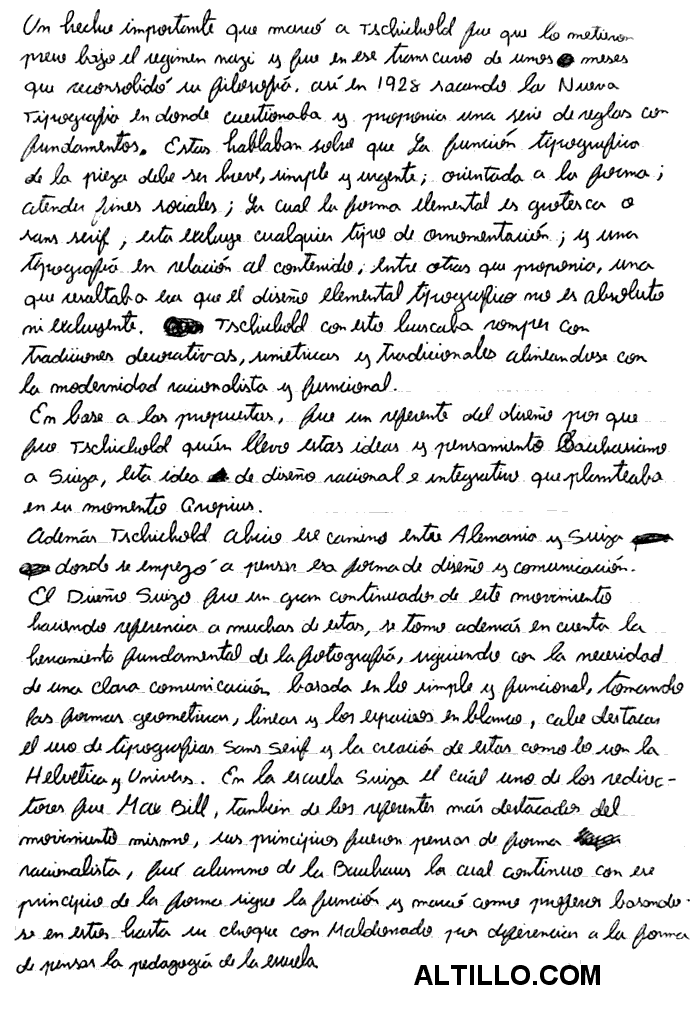 Un hecho importante que marcó a Tschichold fue que lo metieron
preso bajo el regimen nazi y fue en ese transcurso de unos meses
que reconsolidó su filosofía, así en 1928 sacando la Nueva
Tipografía en donde cuestionaba y proponia una serie de reglas con
fundamentos. Estas hablaban sobre que La función tipografica
de la pieza debe ser breve, simple y urgente; orientada a la forma;
atender fines sociales; La cual la forma elemental es grotesca o
sans serif, esta excluye cualquier tipo de ornamentación; y una
tipografía en relación al contenido, entre otras que proponia, una
que resaltaba era que el diseño elemental tipografico no es absoluto
ni excluyente. Tschichold con esto buscaba romper con
tradiciones decorativas, simétricas y tradicionales alineandose con
la modernidad racionalista y funcional.
En base a las propuestas, fue un referente del diseño por que
fue Tschichold quién llevo estas ideas y pensamiento Bauhausiano
a Suiza, esta idea de diseño racional e integrativo que planteaba
en su momento Gropius.
Además Tschichold abrio ese camino entre Alemania y Suiza
donde se empezó a pensar esa forma de diseño y comunicación.
El Diseño Suizo fue un gran continuador de este movimiento
haciendo referencia a muchas de estas, se tomo además en cuenta la
herramienta fundamental de la fotografía, siguiendo con la necesidad
de una clara comunicación, basada en lo simple y funcional, tomando
las formas geometricas, lineas y los espacios en blanco, cabe destacar
el uso de tipografias Sans Serif y la creación de estas como lo son la
Helvetica y Univers. En la escuela Suiza el cuál uno de los redirec-
tores fue Max Bill, tambien de los referentes más destacados del
movimiento mismo, sus principios fueron pensar de forma
racionalista, fué alumno de la Bauhaus la cual continuo con ese
principio de la forma sigue la función y marcó como profesor basando-
se en estos hasta su choque con Maldonado por diferencias a la forma
de pensar la pedagogía de la escuela
ALTILLO.COM